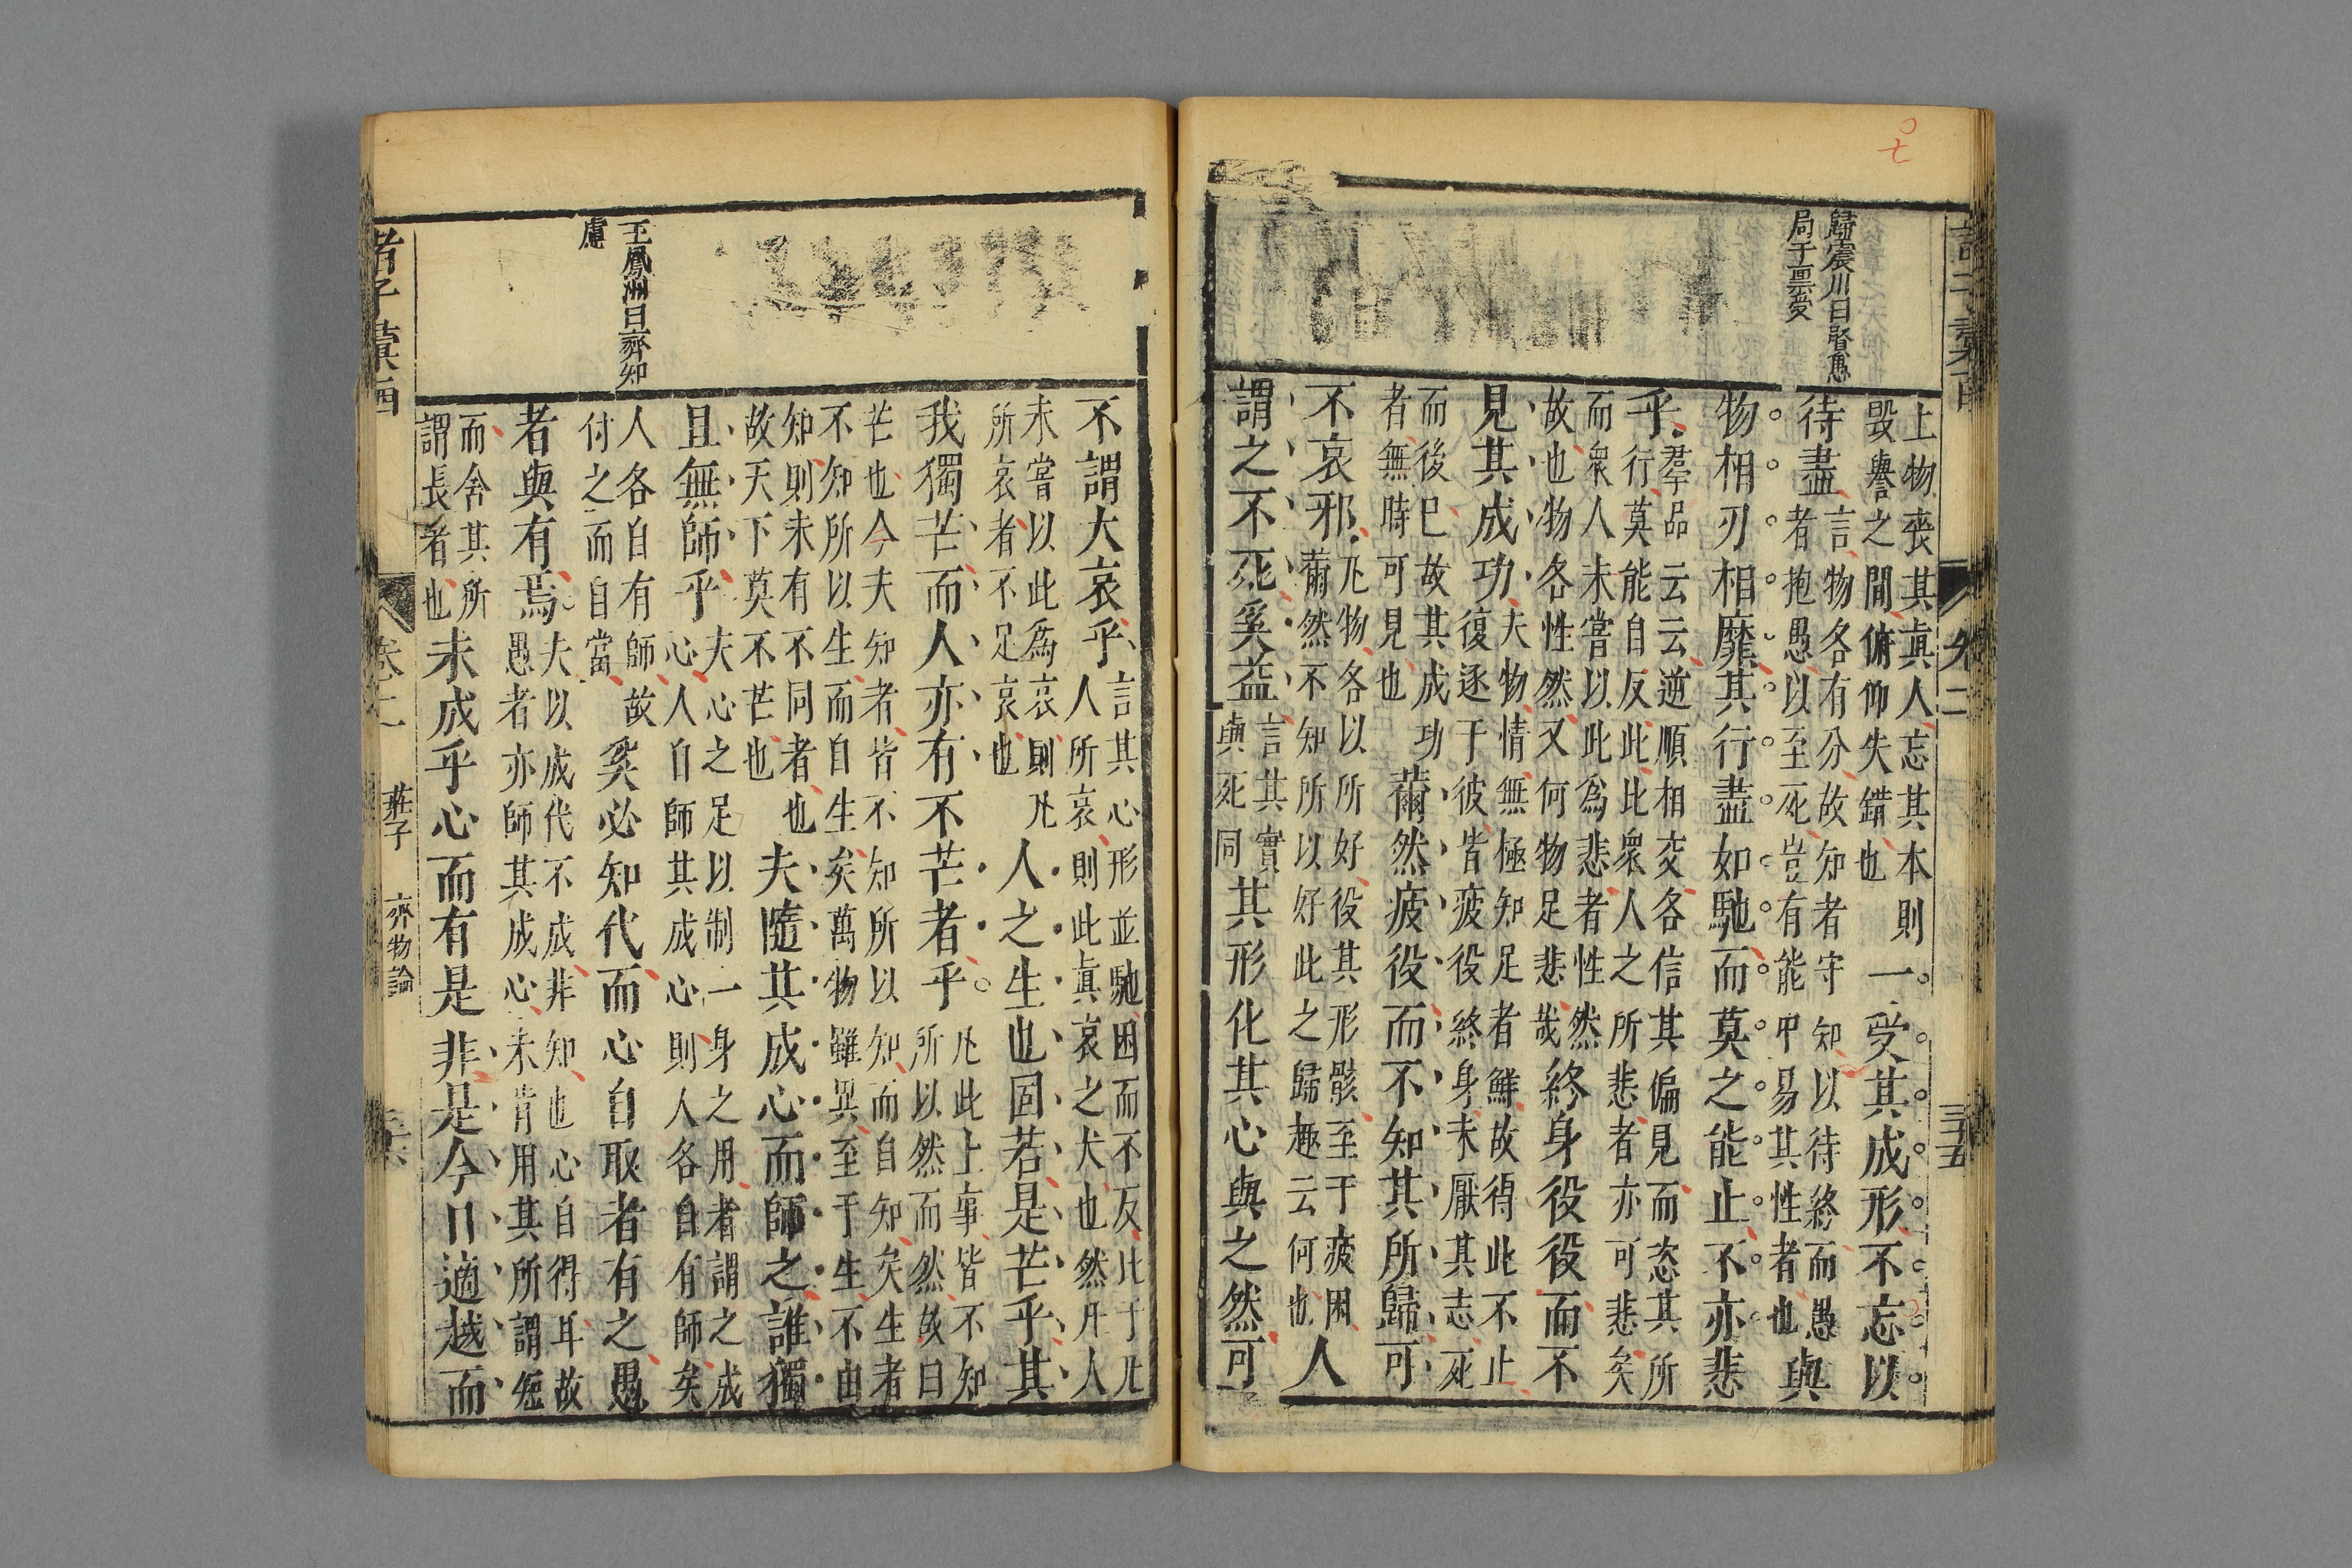 歸震川曰智愚
局于稟受
上物喪其眞人忘其本則一受其成形不忘以
毀譽之間俯仰失錯也
待盡言物各有分故知者守知以待終而愚與
者抱愚以至死豈有能中易其性者也
物相刃相靡其行盡如馳而莫之能止不亦悲
乎羣品云云逆順相交各信其偏見而恣其所
行莫能自反此比衆人之所悲者亦可悲矣
而衆人未嘗以此為悲者性然
故也物各性然又何物足悲哉終身役役而不
見其成功夫物情無極知足者鮮故得此不止
復逐于彼皆疲役終身未厭其志死
而後已故其成功
者無時可見也薾然疲役而不知其所歸可
不哀邪凡物各以所好役其形骸至于疲困人
薾然不知所以好此之歸趣云何也
謂之不死奚益言其實
與死同其形化其心與之然可
卷二
三十五
不謂大哀乎言其心形並馳困而不反比于凡
人所哀則此眞哀之大也然凡人
未嘗以此為哀則凡
所哀者不足哀也人之生也固若是芒乎其
我獨芒而人亦有不芒者乎凡此上事皆不知
所以然而然故曰
芒也今夫知者皆不知所以知而自知矣生者
不知所以生而自生矣萬物雖異至于生不由
知則未有不同者也
故天下莫不芒也夫隨其成心而師之誰獨
且無師乎夫心之足以制一身之用者謂之成
心人自師其成心則人各自有師矣
人各自有師故
付之而自當奚必知代而心自取者有之愚
者與有焉夫以成代不成非知也心自得耳故
愚者亦師其成心未肯用其所謂短
而舍其所
謂長者也未成乎心而有是非是今日適越而
王鳳洲曰齊知
慮
卷二
莊子
齊物論
三十六